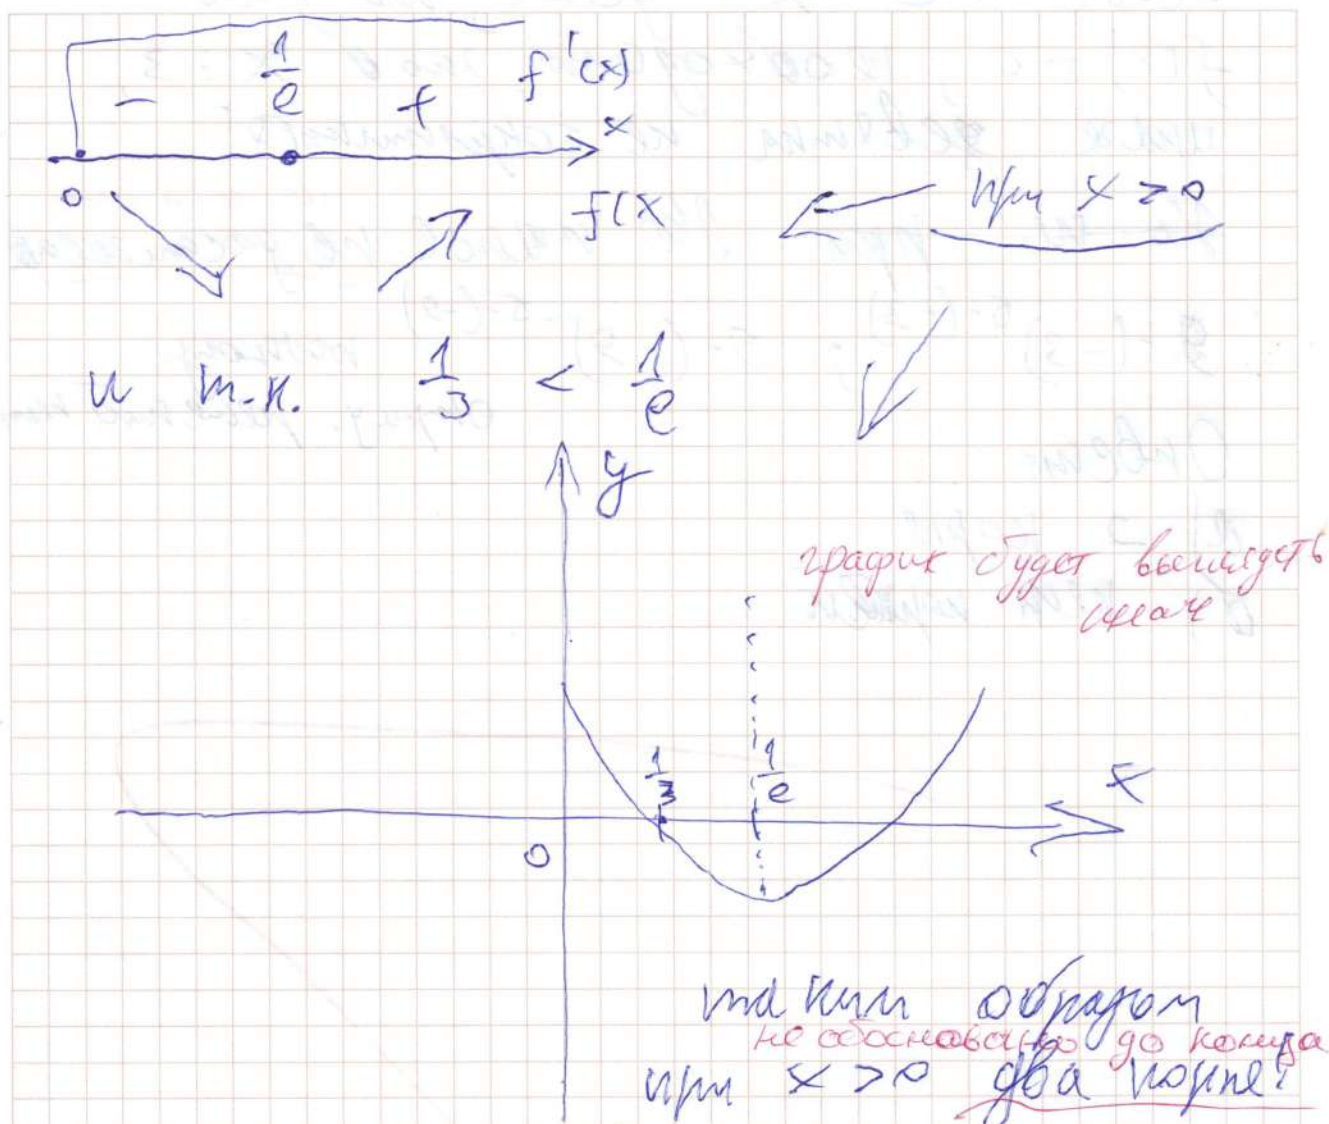 - 1/e + f'(x)
x
0
f(x
при x > 0
и т.к. 1/3 < 1/e
y
график будет выглядеть
иначе
1/3 1/e x
0
таким образом
не обосновано до конца
при x > 0 два корня!